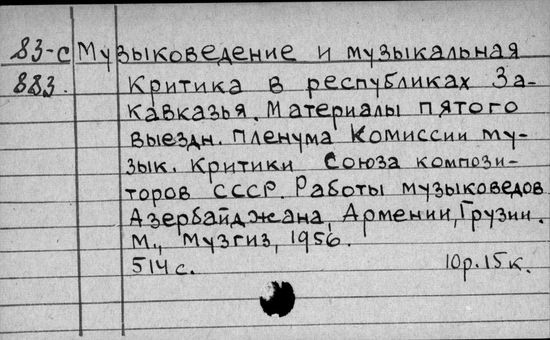 83-с Музыковедение и музыкальная
883. критика в республиках За-
кавказья. Материалы пятого
выездн. пленума Комиссии му-
зык. критики Союза компози-
торов СССР. Работы музыковедов
Азербайджана, Армении, Грузии.
М., Музгиз, 1956.
514 с. 10р.15к.